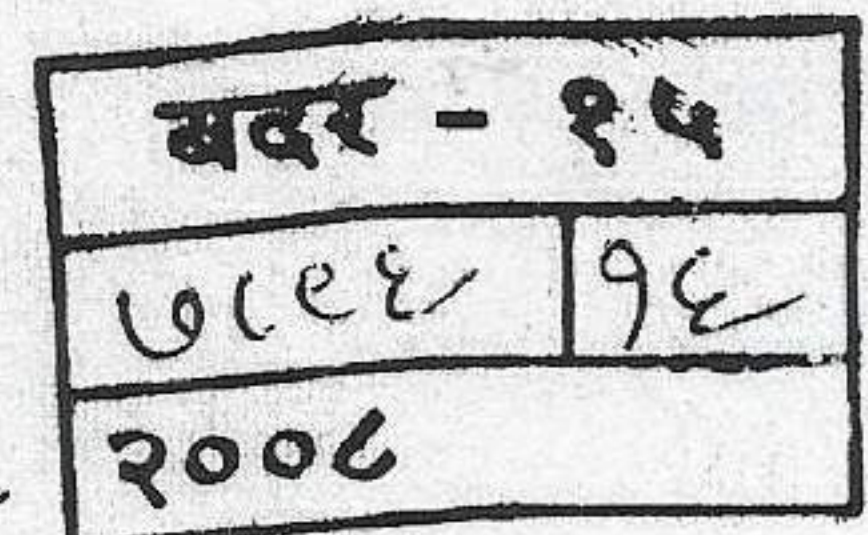 बदर - १५
७८९६ १६
२००८